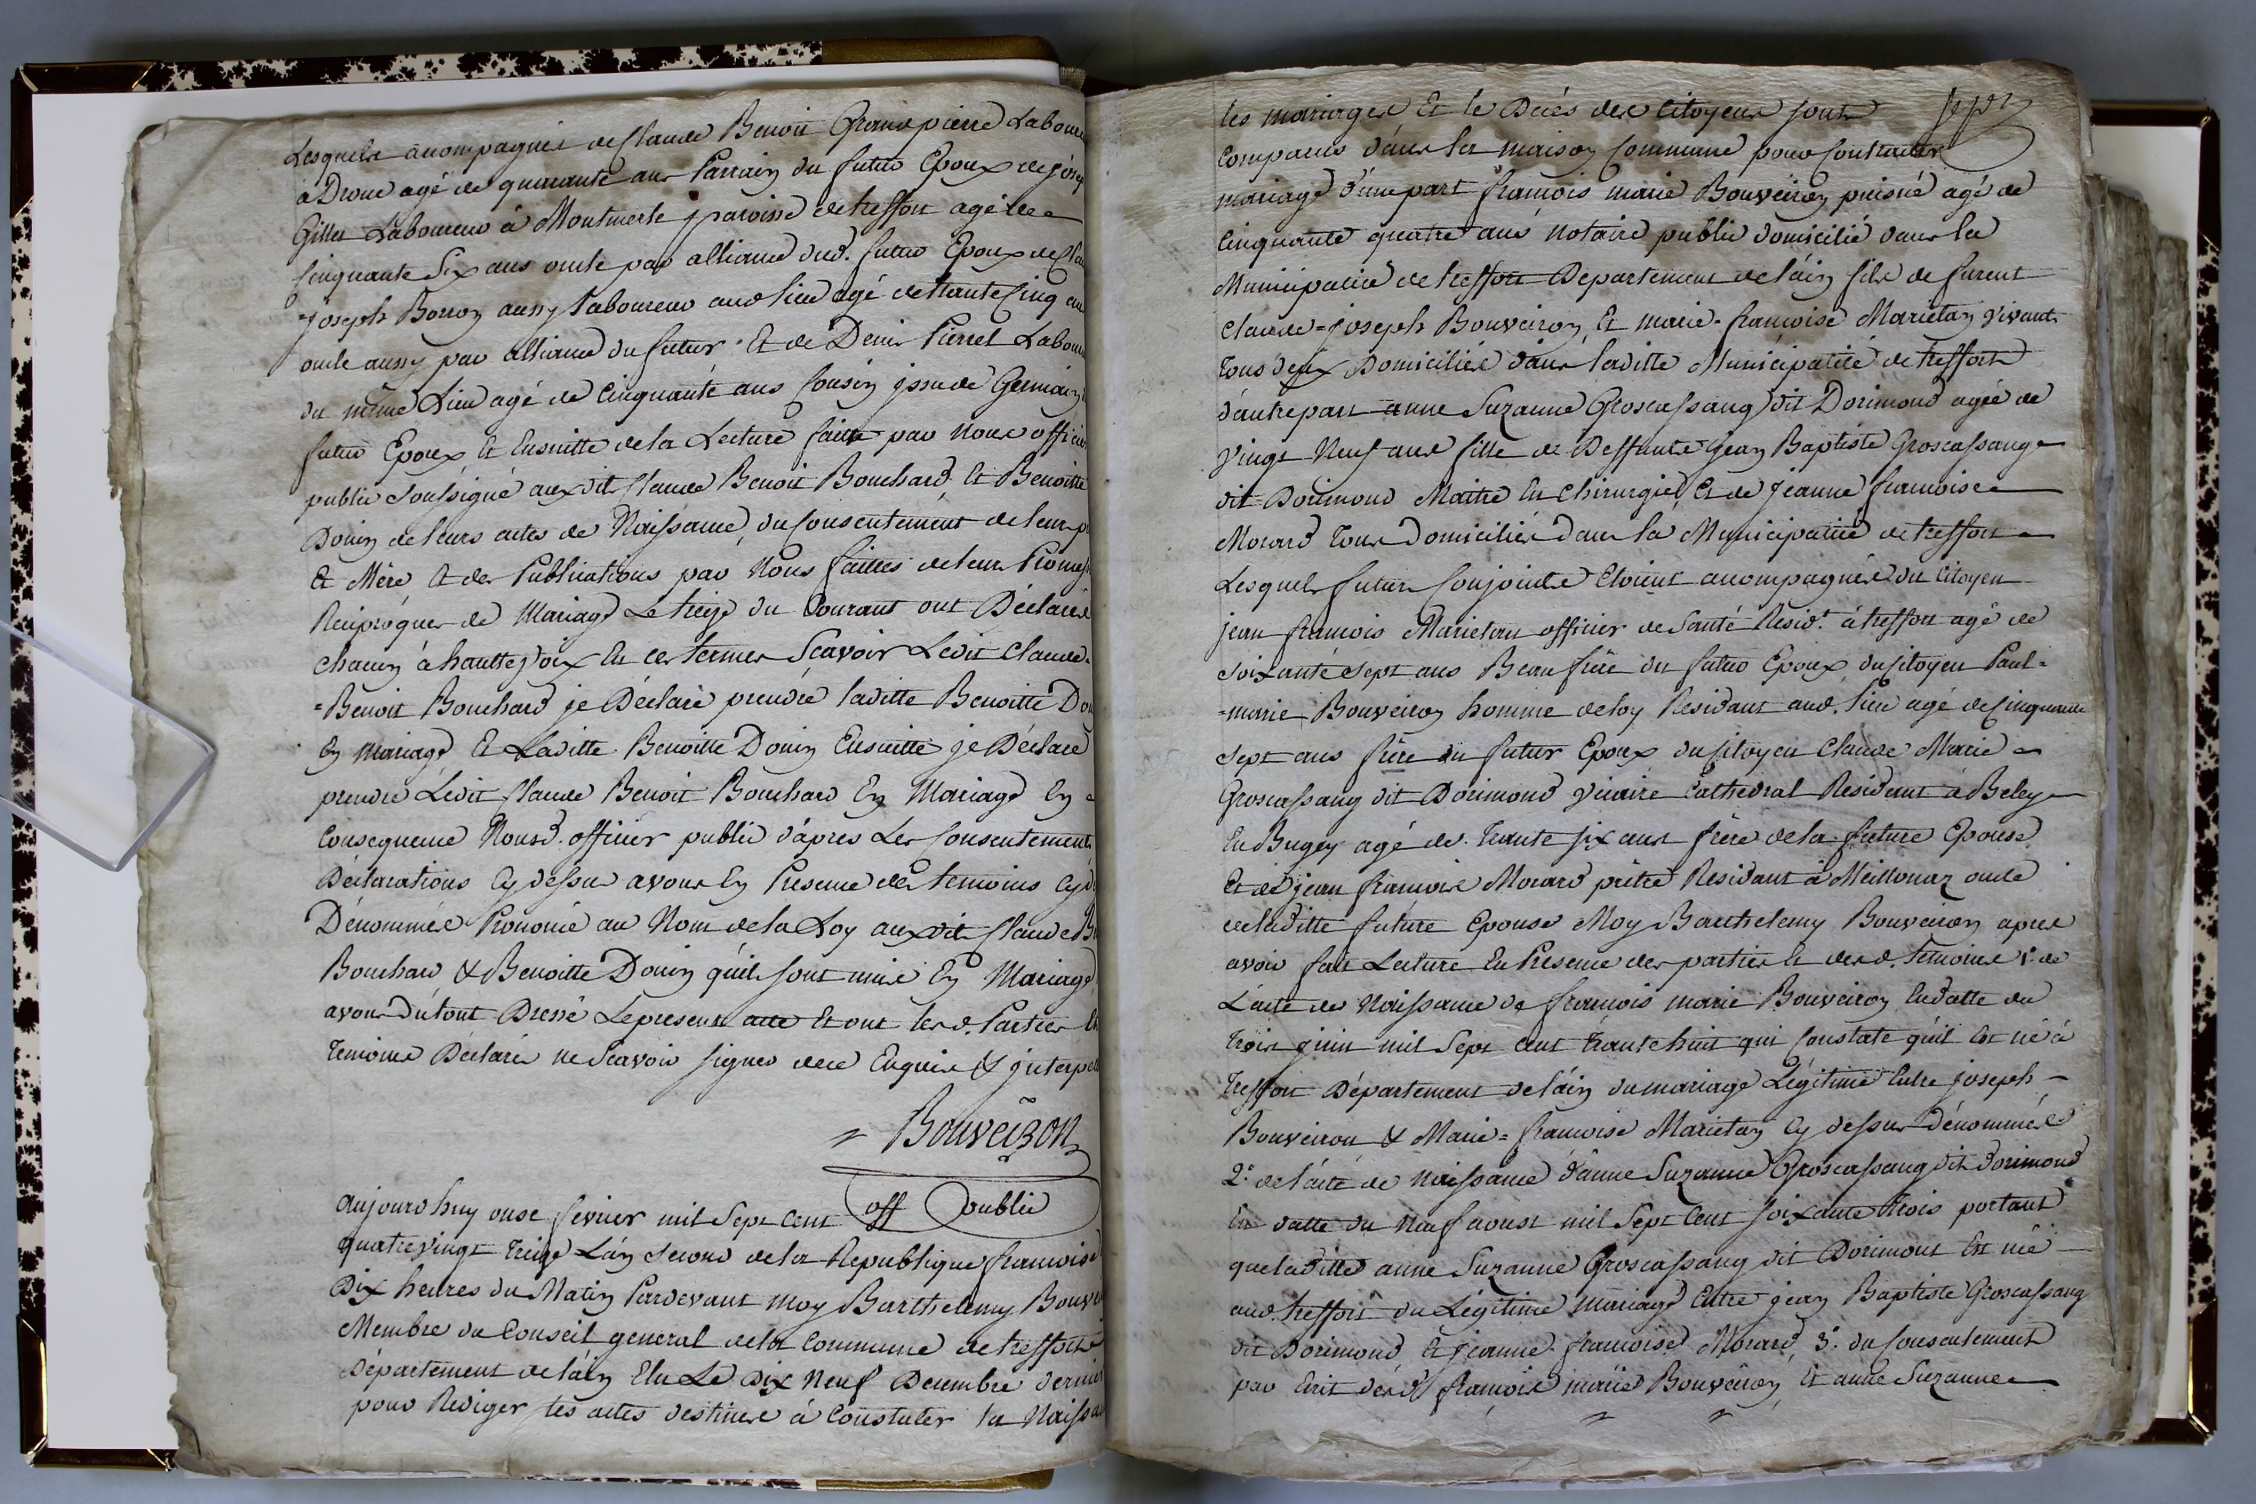 Lesquels acompagnés de Claude Benoit Grandpierre Laboure
à Drom agé de quarante ans Parrain du futur Epoux de josep
Gillet Laboureur à Montmerle paroisse de treffort agé de
Cinquante Six ans oncle par alliance dud. futur Epoux de Clau
Joseph Borron aussy Laboureur aud lieu agé de trante Cinq an
oncle aussy par alliance du futur Et de Denis Pirret Labou
du même Lieu agé de Cinquante ans Cousin jssu de Germain
futur Epoux Et Ensuitte de la Lecture faitte par Nous officier
public Soussigné auxdits Claude Benoit Bouchard Et Benoitte
Donin de leurs actes de Naissance, du Consentement de leurs p
Et Mère, Et des Publications par Nous faittes de leur Promess
Reciproques de Mariage Le treize du Courant ont Déclaré
Chacun à hautte voix En ces termes Scavoir Ledit Claude
=Benoit Bouchard je Déclare prendre laditte Benoitte Don
En Mariage Et Laditte Benoitte Donin Ensuitte je Déclare
prendre Ledit Claude Benoit Bouchard En Mariage En
Consequence Nousd. officier public d'apres Les Consentements
Déclarations Cy dessus avons En Presence des temoins Cy d
Dénommés Prononcé au Nom de la Loy auxdits Claude B
Bouchard & Benoitte Donin qu'ils sont unis En Mariage
avons du tout Dressé Le present acte Et ont lesd. Parties Et
temoins Déclarés ne Scavoir signer de ce Enquis & jnterpe
Bouveiron
off public
aujourdhuy onse fevrier mil Sept Cent
quatrevingt treize L'an second de la Republique francoise
Dix heures du Matin Pardevant moy Barthelemy Bouve
Membre du Conseil general de la Commune de treffort
Département de l'ain Elu Le Dix Neuf Decembre dernier
pour Rediger les actes destinés à Constater la Naissa
les mariages Et le Decés des Citoyens sont
Comparus dans la maison Commune pour Contracter
mariage d'une part francois marie Bouveiron puisné agé de
Cinquante quatre ans Notaire public domicilié dans la
Municipalité de treffort Departement de l'ain fils de furent
Claude=joseph Bouveiron Et marie-françoise Marietan vivants
tous deux Domiciliés dans laditte Municipalité de treffort
d'autrepart anne Suzanne Groscassang dit Dorimond agée de
vingt Neuf ans fille de Deffunts jean Baptiste Groscassang
dit Dorimond Maitre En Chirurgie, Et de Jeanne francoise
Morard tous Domiciliés dans la Municipalité de treffort
Lesquels futurs Conjoints Etoient acompagnés du Citoyen
jean francois Marietan officier de Santé Resid.t à treffort agé de
Soixante Sept ans Beaufrère du futur Epoux du Citoyen Paul=
=marie Bouveiron homme de loy Residant aud. lieu agé de Cinquante
Sept ans frère du futur Epoux du Citoyen Claude Marie
Groscassang dit Dorimond vicaire Cathedral Residant à Beley
En Bugey agé de trante six ans frère de la future Epouse
Et de jean françois Morard prêtre Residant à Meillonaz oncle
de laditte future Epouse Moy Barthelemy Bouveiron apres
avoir fait Lecture En Presence des parties Et desd. temoins 1.° de
L'acte de Naissance de francois marie Bouveiron En datte du
trois juin mil Sept Cent trante huit qui Constate qu'il Est né à
treffort Département de l'ain du mariage Légitime Entre joseph
Bouveiron & Marie=francoise Marietan Cy dessus Dénommés
2.° de l'acte de Naissance d'anne Suzanne Groscassang dit dorimond
En datte du Neuf aoust mil Sept Cent soixante trois portant
que laditte anne Suzanne Groscassang dit Dorimont Est née
aud. treffort du Légitime Mariage Entre jean Baptiste Groscassang
dit Dorimond Et jeanne francoise Morard, 3.° du Consentement
par Ecrit desd. françois marie Bouveiron, Et anne Suzanne